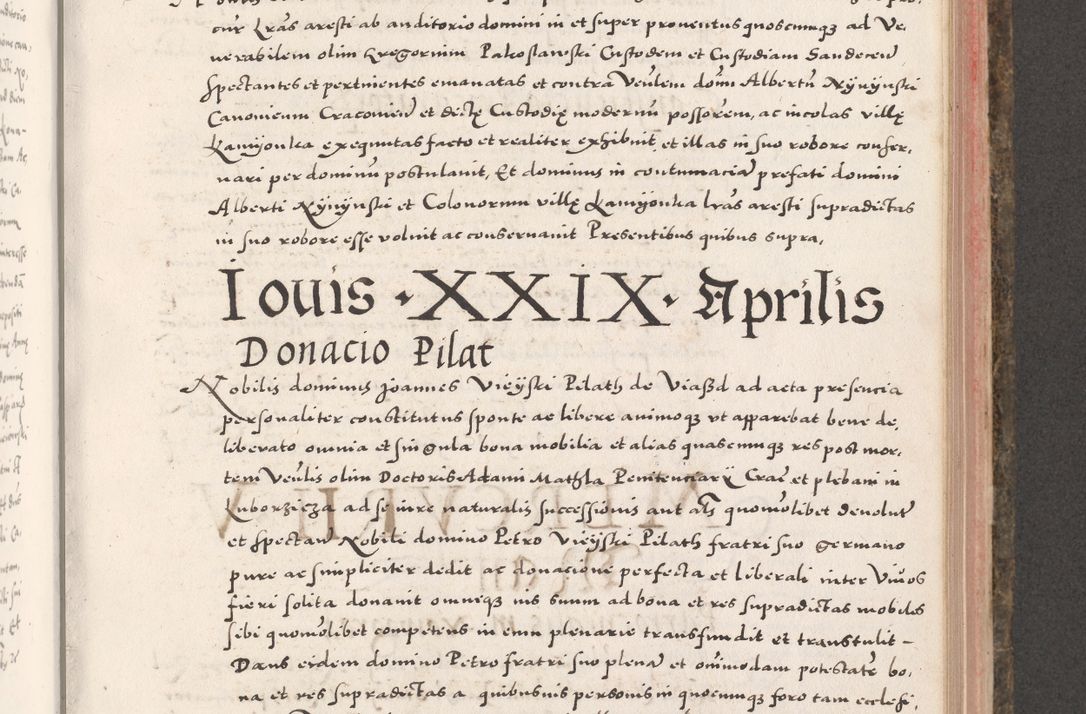 cur Lras aresti ab auditorio domini in et super proventus quoscumq3 ad Ve,
nerabilem olim Gregorium Pakoslawski Custodem et Custodiam Sandecen
spectantes et pertinentes emanatas et contra Venlem domi Albertu Nynynski
Canonicum Cracovien et dicte Custodię modernu possorem, ac incolas villę
Kamyonka exequutas facto et realiter exhibuit, et illas in suo robore confer,
uari per dominu postulauit, Et dominus in contumacia prefati domini
Alberti Nynynski et Colonorum villę Kamyonka lras aresti supradictas
in suo robore esse voluit ac conservauit Presentibus quibus supra,
Iouis · XXIX · Aprilis
Donacio Pilat
Nobilis dominus Joannes Vieyski Pilath de Viassd ad acta presencia
personaliter constitutus sponte ac libere animoq3 vt apparebat bene de,
liberato omnia et singula bona mobilia et alias quascumq3 res post mor,
tem Venlis olim Doctoris Adami Mathla Penitenciarÿ Crac et plebani in
Luborzicza ad se iure naturalis successionis aut als quomolibet deuolut
et spectan Nobili domino Petro Vieyski Pilath fratri suo germano
pure ac simpliciter dedit ac donacione perfecta et liberali inter Viuos
fieri solita donauit omneq3 ius suum ad bona et res supradictas mobiles
sibi quomolibet competens in eum plenarie transfundit et transtulit –
Dans eidem domino Petro fratri suo plena et omimodam potestate bo,
na et res supradictas a quibusuis personis in quocumq3 foro tam ecclesi,